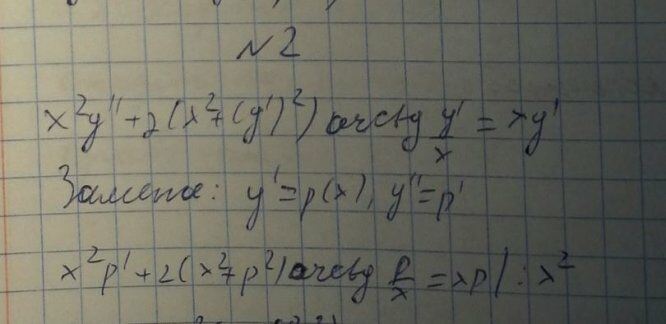 №2
x²y'' + 2(x² + (y')²) arctg y'/x = xy'
Замена: y' = p(x), y'' = p'
x²p' + 2(x² + p²) arctg p/x = xp | : x²